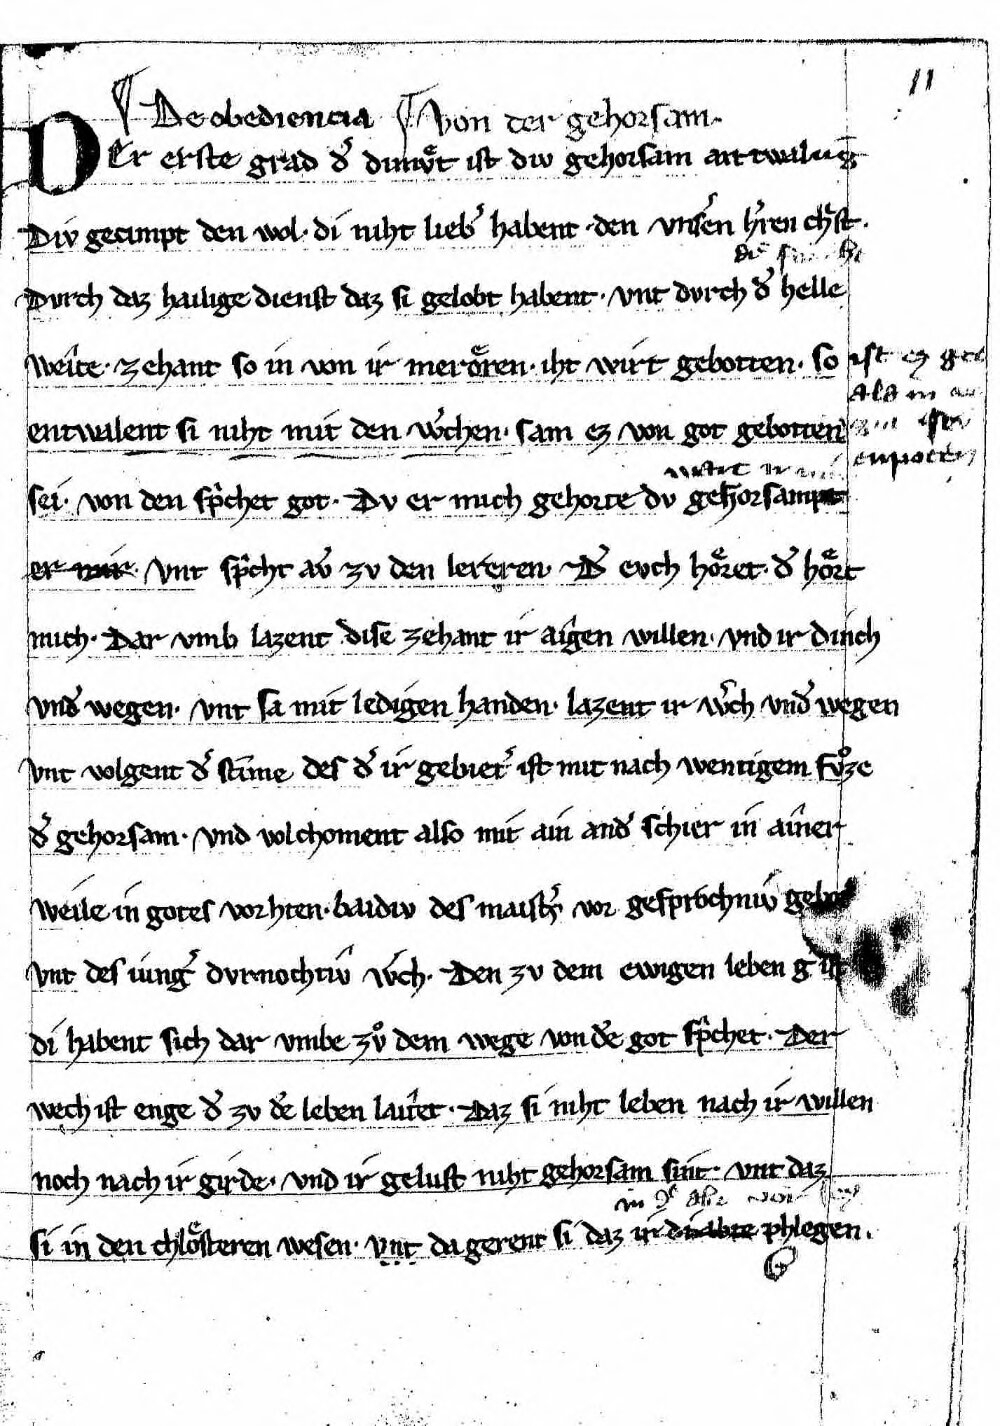 11
De obediencia Von der gehorsam.
Er erste grad d̾ dimuͤt ist div gehorsam an twalūg
Div gecimpt den wol· di niht lieb̾ habent ·den vns̾en h̾ren ch͛st·
Dvrch daz hailige dienst daz si gelobt habent· vnt dvrch d̾ helle
weîtce· zehant so in von ir meroͤren· iht wirt gebotten· so
entwalent si niht mit den w̾chen· sam ez von got gebotten
sei· von den sp͛chet got· Dv er mich gehorte dv gehorsampt
er mir· vnt sp͛cht av̾ zv den lereren· D̾ evch hoͤret· d̾ hoͤrt
mich· Dar vmb lazent dise zehant ir aîgen willen· vnd ir dinch
vnd̾ wegen· vnt sa mit ledigen handen· lazent ir w̾ch vnd̾ wegen
vnt volgent d̾ stīme des d̾ ir gebiet̾ ist mit nach wentigem fvͦze
d̾ gehorsam· vnd volchoment also mit ain and̾ schier in aîner
weile in gotes vorhten· baidiv des maist̾s vor gesprochniv gebot
vnt des iung̾ dvrnochtiv w̾ch· Den zv dem ewigen leben g ist
di habent sich dar vmbe zvͦ dem wege von de̾ got sp͛chet· Der
wech ist enge d̾ zv de̾ leben laîtet· Daz si niht leben nach ir willen
noch nach ir girde· vnd ir gelust niht gehorsam sint· vnt daz
si in den chloͤsteren wesen· vnt da gerent si daz in ein abte phlegen.